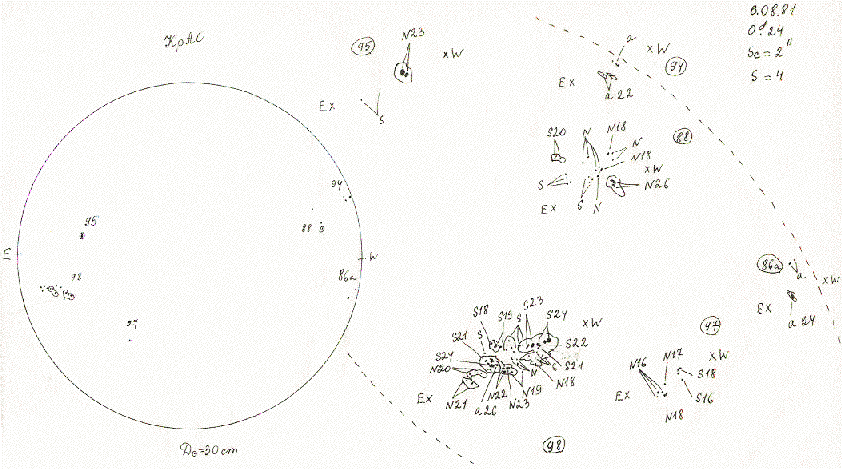 КрАО
9.08.81
S = 4
95
N23
xW
Ex
S
a
xW
94
Ex
a 22
88
S20
N
N18
N
N18
xW
N26
S
S
N
Ex
94
95
88
W
86a
98
97
86a
a
xW
Ex
a 24
S18
S19
S
S23
S24
xW
S21
S
S22
S24
S21
N20
N
N18
Ex
N21
a 26
N22
N23
N19
98
97
N16
N17
xW
S18
Ex
S16
N18
D☉=30 cm